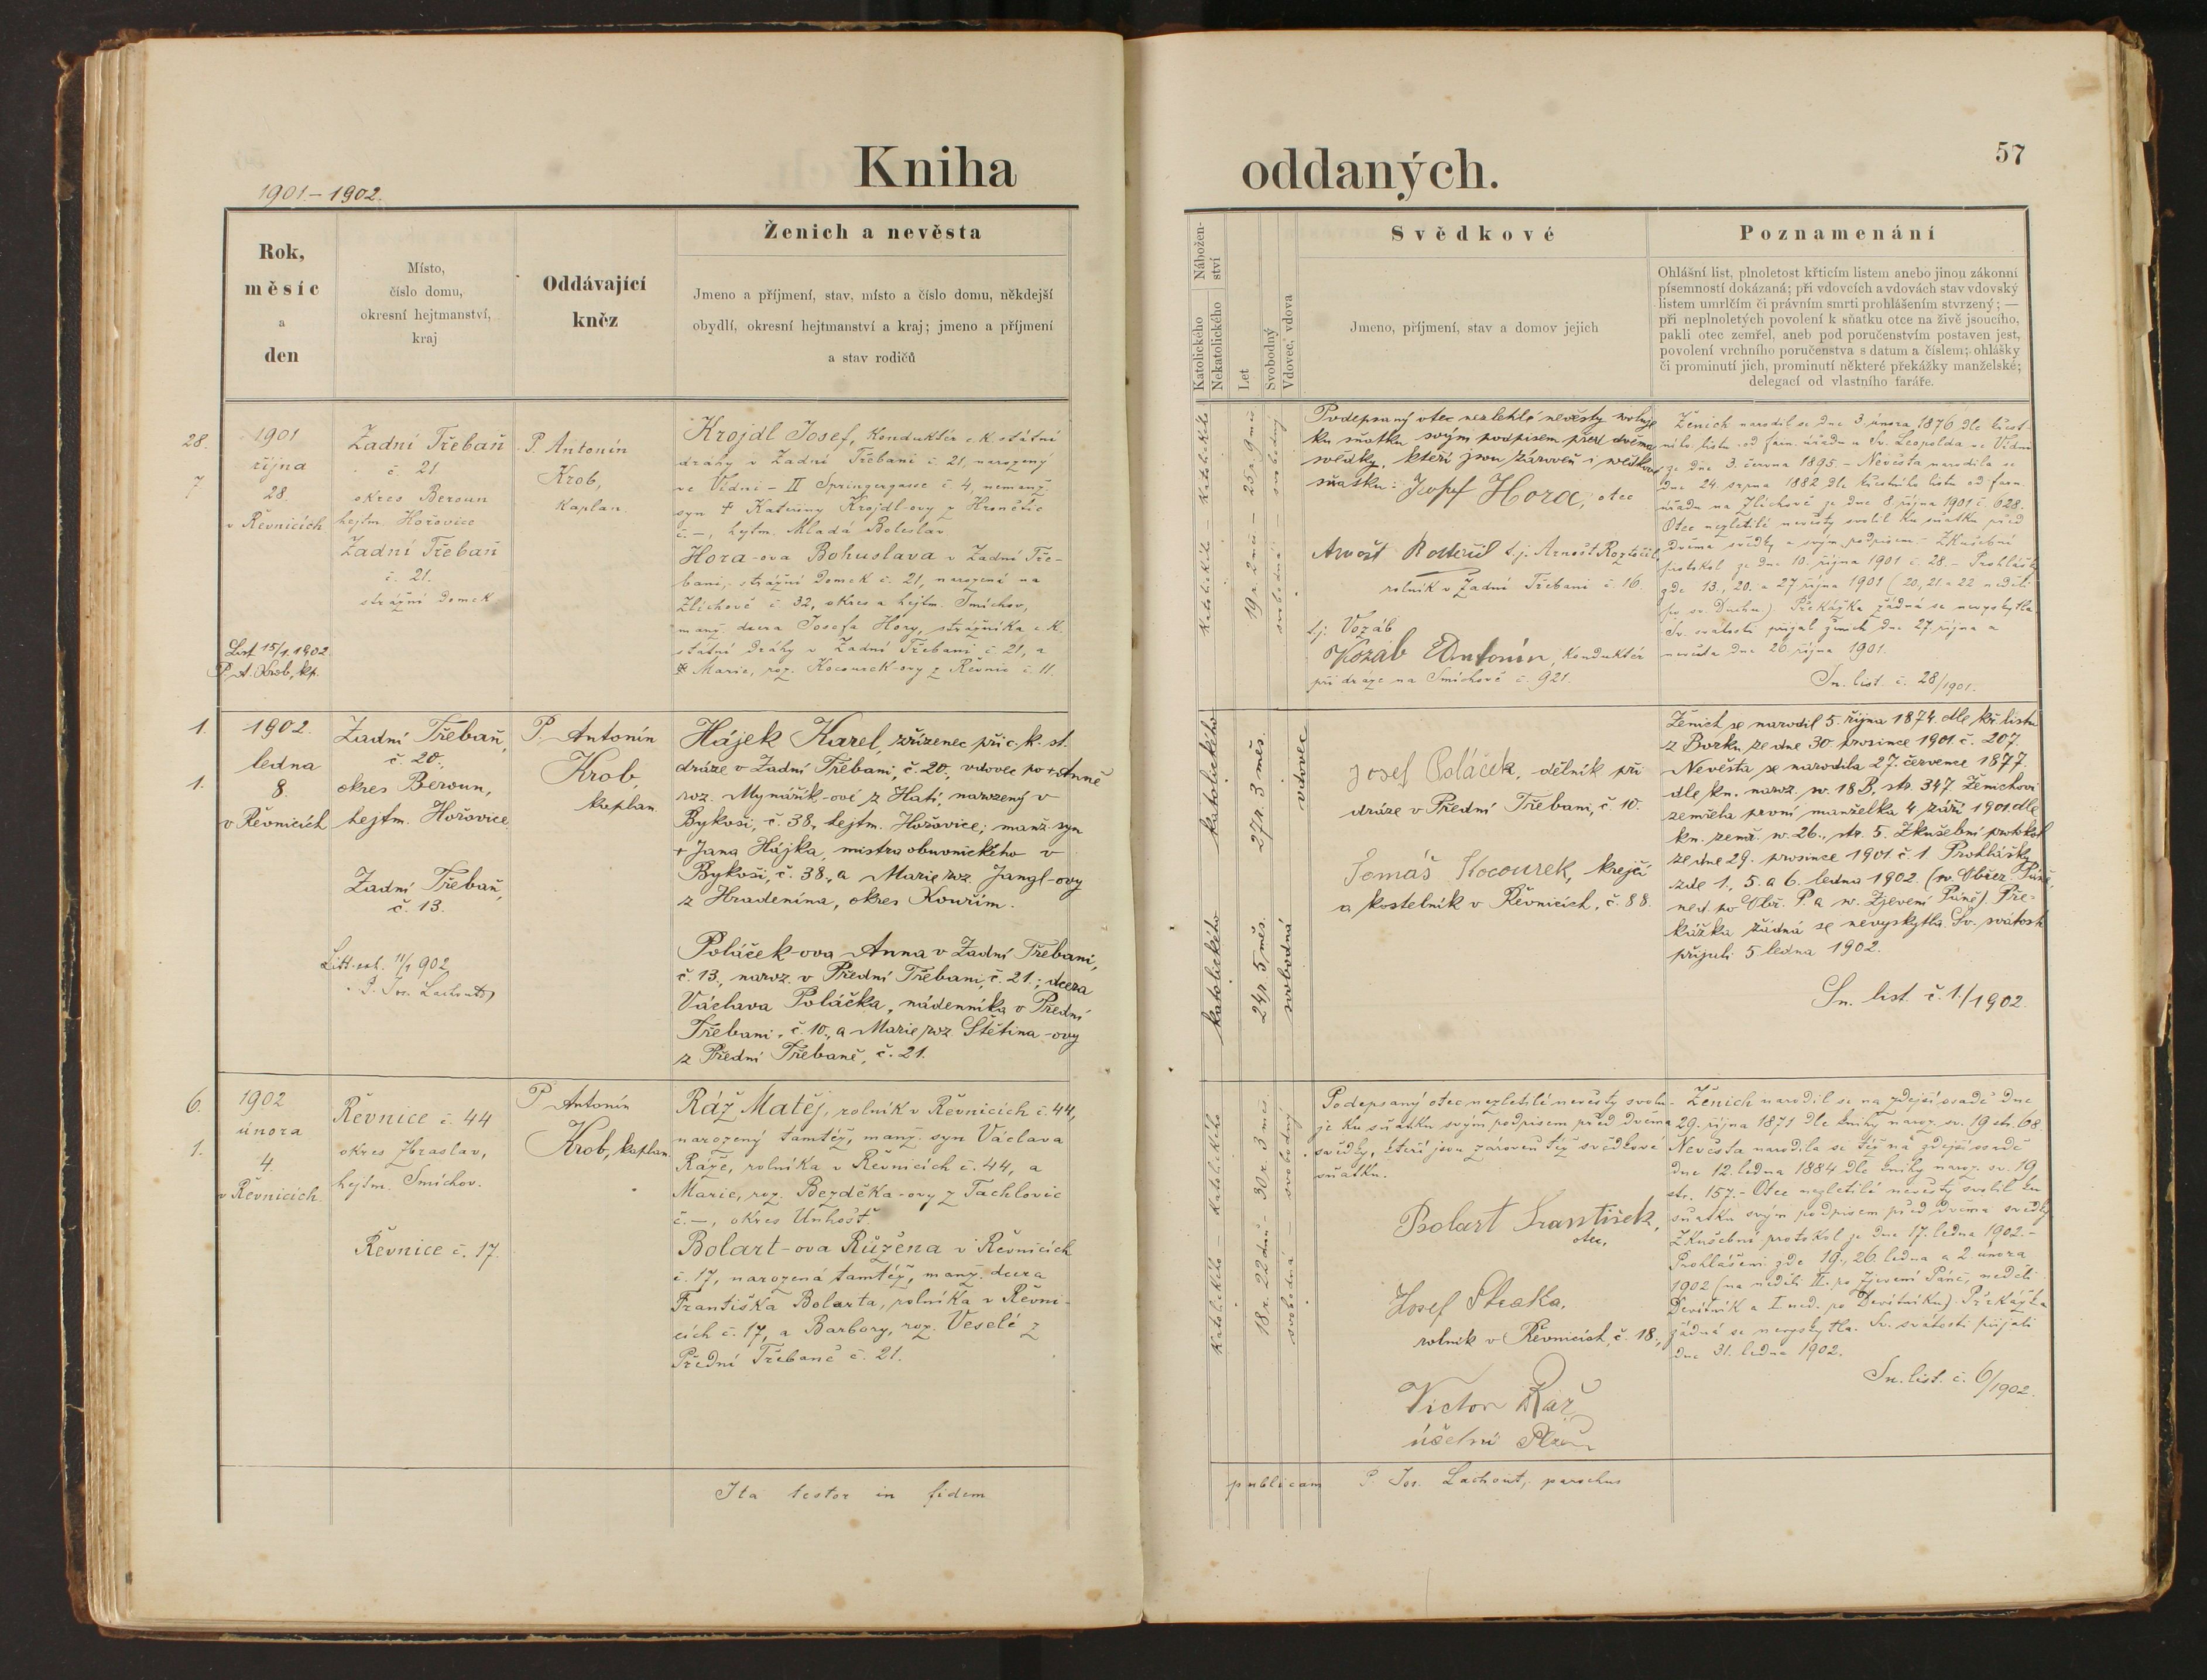 Kniha
oddaných.
57
1901.–1902.
Rok,
měsíc
a
den
Místo,
číslo domu,
okresní hejtmanství,
kraj
Oddávající
kněz
Ženich a nevěsta
Jmeno a příjmení, stav, místo a číslo domu, někdejší
obydlí, okresní hejtmanství a kraj; jmeno a příjmení
a stav rodičů
Nábožen-
ství
Katolického
Nekatolického
Let
Svobodný
Vdovec, vdova
Svědkové
Jmeno, příjmení, stav a domov jejich
Poznamenání
Ohlášní list, plnoletost křticím listem anebo jinou zákonní
písemností dokázaná; při vdovcích a vdovách stav vdovský
listem umrlčím či právním smrti prohlášením stvrzený; —
při neplnoletých povolení k sňatku otce na živě jsoucího,
pakli otec zemřel, aneb pod poručenstvím postaven jest,
povolení vrchního poručenstva s datum a číslem; ohlášky
či prominutí jich, prominutí některé překážky manželské;
delegací od vlastního faráře.
28.
7
1901
října
28.
v Řevnicích
List 15/1. 1902
P. A. Krob, kp.
Zadní Třebaň
č. 21
okres Beroun
hejtm. Hořovice
Zadní Třebaň
č. 21.
strážní domek
P. Antonín
Krob,
kaplan.
Krojdl Josef, konduktér c. k. státní
dráhy v Zadní Třebani č. 21, narozený
ve Vídni – II Springergasse č. 4, nemanž.
syn † Kateřiny Krojdl-ovy z Hronětic
č. –, hejtm. Mladá Boleslav
Hora-ova Bohuslava v Zadní Tře-
bani, strážní domek č. 21, narozená na
Zlíchově č. 32, okres a hejtm. Smíchov,
manž. dcera Josefa Hory, strážníka c. k.
státní dráhy v Zadní Třebani č. 21, a
Marie, roz. Kocourek-ovy z Řevnic č. 11.
katolického
katolického
25 r. 9 měs.
19 r. 2 měs.
svobodný
svobodná
Podepsaný otec nezletilé nevěsty svoluje
ku sňatku svým podpisem před dvěma
svědky, kteří jsou zároveň i svědkové
sňatku: Josef Hora, otec
Arnošt Roztočil t. j. Arnošt Roztočil
rolník v Zadní Třebani č. 16.
t. j. Vozáb
Vozab Antonín, konduktér
při dráze na Smíchově č. 921.
Ženich narodil se dne 3. února 1876 dle křest-
ního listu od farn. úřadu u Sv. Leopolda ve Vídni
ze dne 3. června 1895. – Nevěsta narodila se
dne 24. srpna 1882 dle křestního listu od farn.
úřadu na Zlíchově ze dne 8. října 1901 č. 628.
Otec nezletilé nevěsty svolil ku sňatku před
dvěma svědky svým podpisem – Zkušební
protokol ze dne 10. října 1901 č. 28. – Prohlášky
zde 13., 20. a 27 října 1901 (20, 21 a 22 neděli
po sv. Duchu.) Překážka žádná se nevyskytla
Sv. svátosti přijal ženich dne 27 října a
nevěsta dne 26 října 1901.
Sn. list. č. 28/1901.
1.
1.
1902.
ledna
8.
v Řevnicích
Zadní Třebaň,
č. 20.,
okres Beroun,
hejtm. Hořovice.
Zadní Třebaň,
č. 13.
11/1 902
P. Jos. Lachout
P. Antonín
Krob,
kaplan
Hájek Karel, zřízenec při c. k. st.
dráze v Zadní Třebani, č. 20., vdovec po † Anně
roz. Mynářík-ové z Hatí, narozený v
Bykoši, č. 38, hejtm. Hořovice; manž. syn
† Jana Hájka, mistra obuvnického v
Bykoši, č. 38, a Marie roz. Jangl-ovy
z Hradenína, okres Kouřim.
Poláček-ova Anna v Zadní Třebani,
č. 13., naroz. v Přední Třebani, č. 21.; dcera
Václava Poláčka, nádenníka v Přední
Třebani, č. 10., a Marie roz. Štětina-ovy
z Přední Třebaně, č. 21.
katolického
katolického
27 r. 3 měs.
24 r. 5 měs.
vdovec
svobodná
Josef Poláček, dělník při
dráze v Přední Třebani, č. 10.
Tomáš Kocourek, krejčí
a kostelník v Řevnicích, č. 88.
Ženich se narodil 5. října 1874. dle kř. listu
z Borku ze dne 30 prosince 1901. č. 207.
Nevěsta se narodila 27. července 1877.
dle kn. naroz. sv. 18 B, str. 347. Ženichovi
zemřela první manželka 4 září 1901. dle
kn. zemř. sv. 26., str. 5. Zkušební protokol
ze dne 29. prosince 1901. č. 1 Prohlášky
zde 1., 5. a 6. ledna 1902. (sv. Obřez. Páně,
ned. po Obř. P. a sv. Zjevení Páně). Pře-
kážka žádná se nevyskytla. Sv. svátosti
přijali 5 ledna 1902.
Sn. list č. 1./1902.
6.
1.
1902
února
4.
v Řevnicích.
Řevnice č. 44
okres Zbraslav,
hejtm. Smíchov.
Řevnice č. 17.
P. Antonín
Krob, kaplan.
Ráž Matěj, rolník v Řevnicích č. 44,
narozený tamtéž, manž. syn Václava
Ráže, rolníka v Řevnicích č. 44, a
Marie, roz. Bezděka-ovy z Tachlovic
č. –, okres Unhošť.
Bolart-ova Růžena v Řevnicích
č. 17, narozená tamtéž, manž. dcera
Františka Bolarta, rolníka v Řevni-
cích č. 17, a Barbory, roz. Veselé z
Přední Třebaně č. 21.
katolického
katolického
30 r. 3 měs.
18 r. 22 dnů
svobodný
svobodná
Podepsaný otec nezletilé nevěsty svolu-
je ku sňatku svým podpisem před dvěma
svědky, kteří jsou zároveň též svědkové
sňatku.
Bolart František,
otec,
Josef Straka,
rolník v Řevnicích, č. 18.,
Victor Ráž
účetní
Ženich narodil se na zdejší osadě dne
29. října 1871 dle knihy naroz. sv. 19 str. 68.
Nevěsta narodila se též na zdejší osadě
dne 12. ledna 1884 dle knihy naroz. sv. 19
str. 157. – Otec nezletilé nevěsty svolil ku
sňatku svým podpisem před dvěma svědky.
Zkušební protokol ze dne 17. ledna 1902. –
Prohlášení zde 19., 26. ledna a 2. února
1902 (na neděli II. po Zjevení Páně, neděli
Devítník a I ned. po Devítníku). Překážka
žádná se nevyskytla. Sv. svátosti přijali
dne 31. ledna 1902.
Sn. list. č. 6/1902.
Ita testor in fidem publicam P. Jos. Lachout, parochus